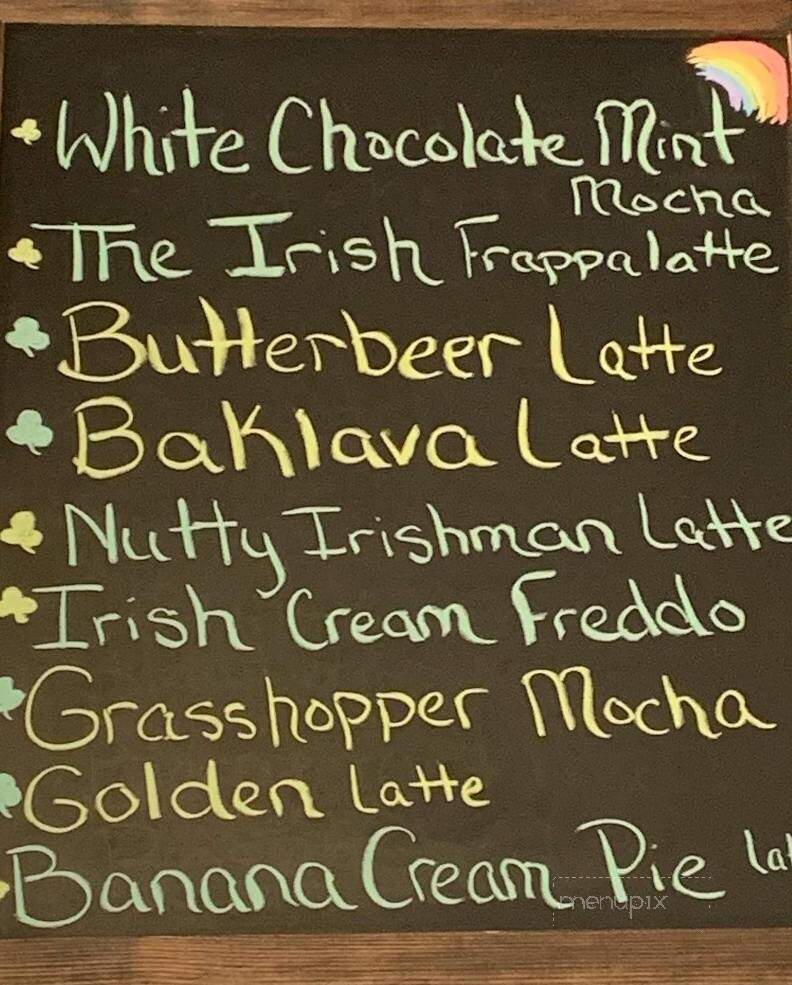 White Chocolate Mint
Mocha
The Irish Frappalatte
Butterbeer Latte
Baklava Latte
Nutty Irishman Latte
Irish Cream Freddo
Grasshopper Mocha
Golden Latte
Banana Cream Pie lat
menupix